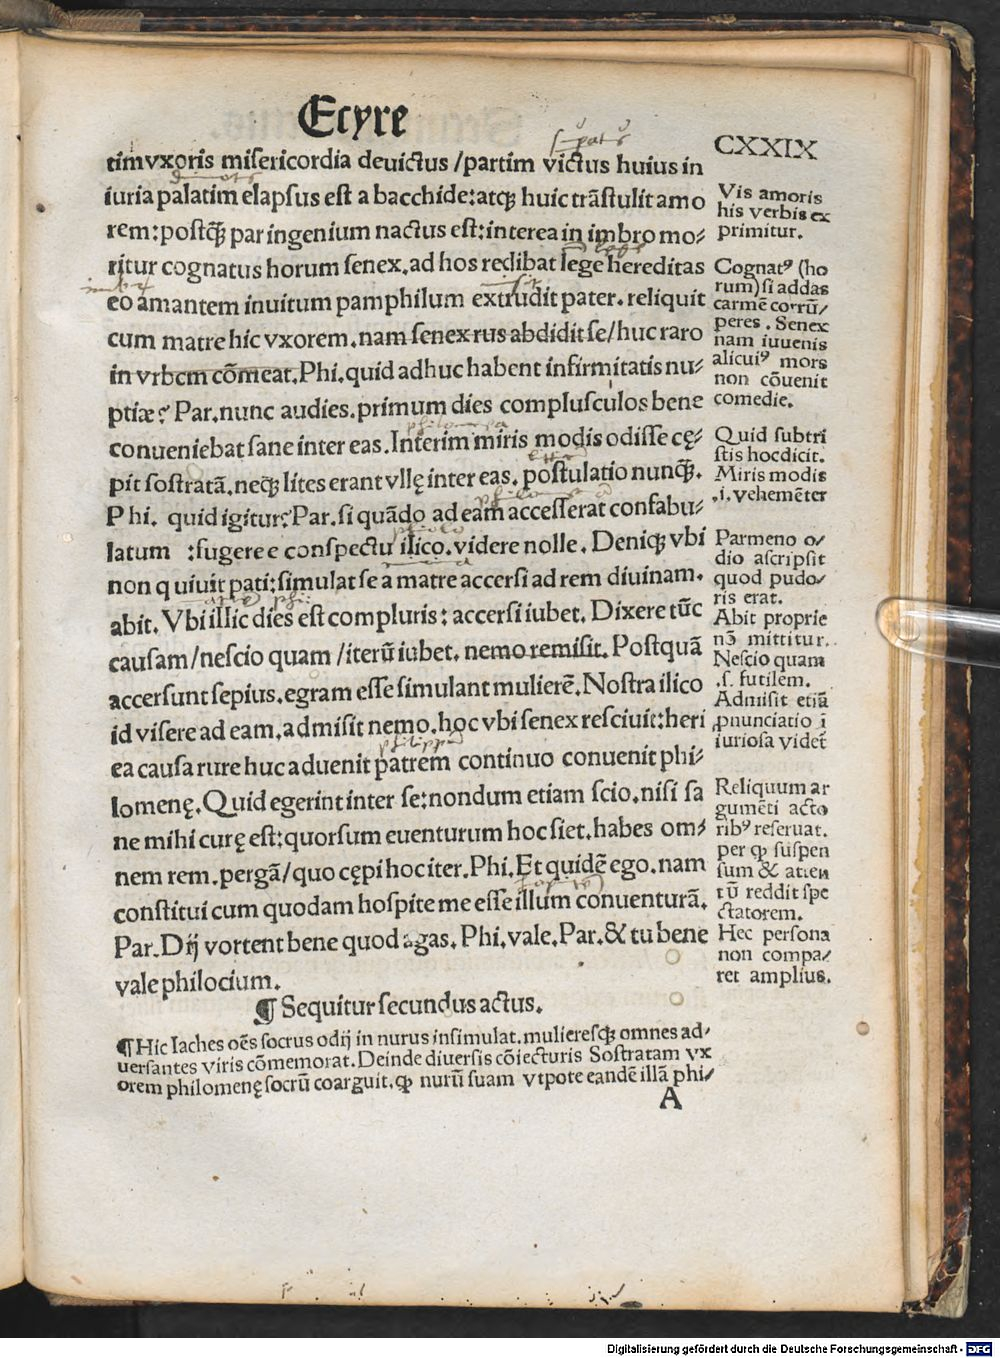 Ecyre
CXXIX
tim vxoris misericordia deuictus / partim victus huius in
iuria palatim elapsus est a bacchide: atqꝫ huic trãstulit amo
rem: postqꝫ̃ par ingenium nactus est: interea in imbro mo⸗
ritur cognatus horum senex. ad hos redibat lege hereditas
eo amantem inuitum pamphilum extrudit pater. reliquit
cum matre hic vxorem. nam senex rus abdidit se / huc raro
in vrbem cõmeat. Phi. quid adhuc habent infirmitatis nu⸗
ptiæ? Par. nunc audies. primum dies complusculos bene
conueniebat sane inter eas. Interim miris modis odisse cę⸗
pit sostratã. neqꝫ lites erant vllę inter eas. postulatio nunqꝫ̃.
Phi. quid igitur? Par. si quãdo ad eam accesserat confabu⸗
latum : fugere e conspectu ilico. videre nolle. Deniqꝫ vbi
non quiuit pati: simulat se a matre accersi ad rem diuinam.
abit. Vbi illic dies est compluris: accersi iubet. Dixere tũc
causam / nescio quam / iterũ iubet. nemo remisit. Postquã
accersunt sepius. egram esse simulant mulierẽ. Nostra ilico
id visere ad eam, admisit nemo. hoc vbi senex resciuit: heri
ea causa rure huc aduenit patrem continuo conuenit phi⸗
lomenę. Quid egerint inter se: nondum etiam scio. nisi sa
ne mihi curę est: quorsum euenturum hoc siet. habes om⸗
nem rem. pergã / quo cępi hoc iter. Phi. Et quidẽ ego. nam
constitui cum quodam hospite me esse illum conuenturã.
Par. Dij vortent bene quod agas. Phi. vale. Par. & tu bene
vale philocium.
¶ Sequitur secundus actus.
¶ Hic laches oẽs socrus odij in nurus insimulat. mulieresqꝫ omnes ad⸗
uersantes viris cõmemorat. Deinde diuersis cõiecturis Sostratam vx
orem philomenę socrũ coarguit. qꝫ nurũ suam vtpote eandẽ illã phi⸗
A
Vis amoris
his verbis ex
primitur.
Cognatꝰ (ho
rum) si addas
carmẽ corrũ⸗
peres. Senex
nam iuuenis
alicuiꝰ mors
non cõuenit
comedie.
Quid subtri
stis hoc dicit.
Miris modis
.i. vehemẽter
Parmeno o⸗
dio ascripsit
quod pudo⸗
ris erat.
Abit proprie
nõ mittitur.
Nescio quam
.s. futilem.
Admisit etiã
ꝓnunciatio ĩ
iuriosa videt̃
Reliquum ar
gumẽti acto
ribꝰ reseruat.
per qꝫ suspen
sum & atten
tũ reddit spe
ctatorem.
Hec persona
non compa⸗
ret amplius.
Digitalisierung gefördert durch die Deutsche Forschungsgemeinschaft - DFG